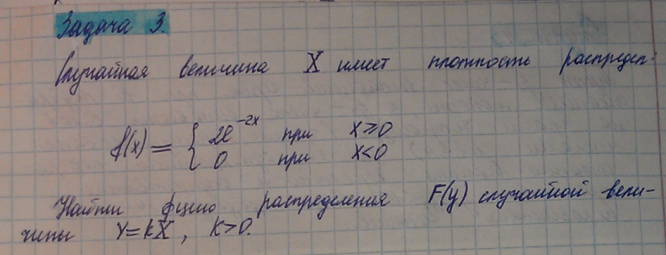 Задача 3.
Случайная величина X имеет плотность распредел.
f(x) = { 2e^{-2x} при x≥0
0 при x<0
Найти фцию распределения F(y) случайной вели-
чины Y=kX, k>0.